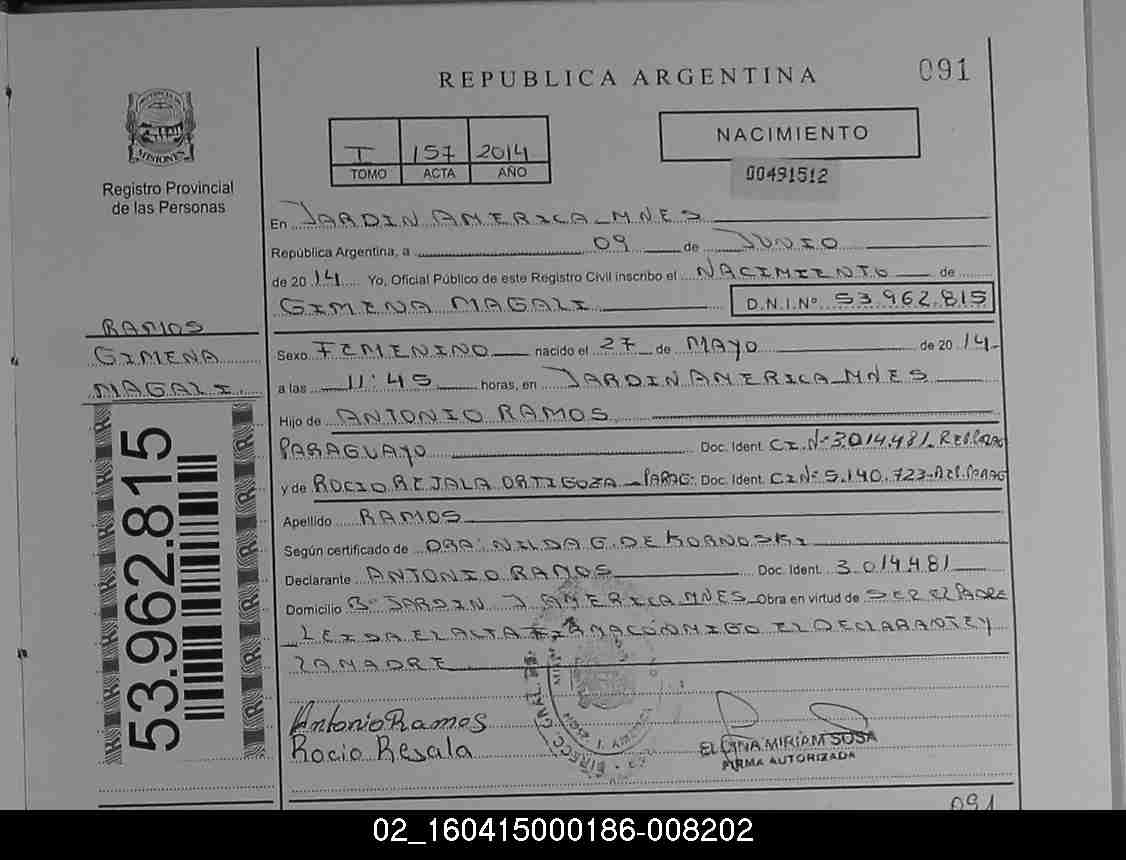 REPUBLICA ARGENTINA
091
MISIONES
Registro Provincial
de las Personas
I 157 2014
TOMO ACTA AÑO
NACIMIENTO
00491512
En JARDIN AMERICA - MNES
República Argentina, a 09 de JUNIO
de 2014 Yo, Oficial Público de este Registro Civil inscribo el NACIMIENTO de
GIMENA MAGALI D.N.I.Nº 53.962.815
RAMOS
GIMENA
MAGALI
53.962.815
Sexo FEMENINO nacido el 27 de MAYO de 2014
a las 11:45 horas, en JARDIN AMERICA - MNES
Hijo de ANTONIO RAMOS
PARAGUAYO Doc. Ident. C.I.Nº 3.014.481 REP. PARAG
y de ROCIO REJALA ORTIGOZA - PARAG. Doc. Ident. C.I.Nº 5.140.723 - REP. PARAG
Apellido RAMOS
Según certificado de DRA. NILDA G. DE KORNOSKI
Declarante ANTONIO RAMOS Doc. Ident. 3.014.481
Domicilio Bº JARDIN J. AMERICA MNES Obra en virtud de SER EL PADRE
LEIDA EL ACTA FIRMA CONMIGO EL DECLARANTE Y
LA MADRE
Antonio Ramos
Rocio Rejala
MIRIAM SOSA
FIRMA AUTORIZADA
091
02_160415000186-008202